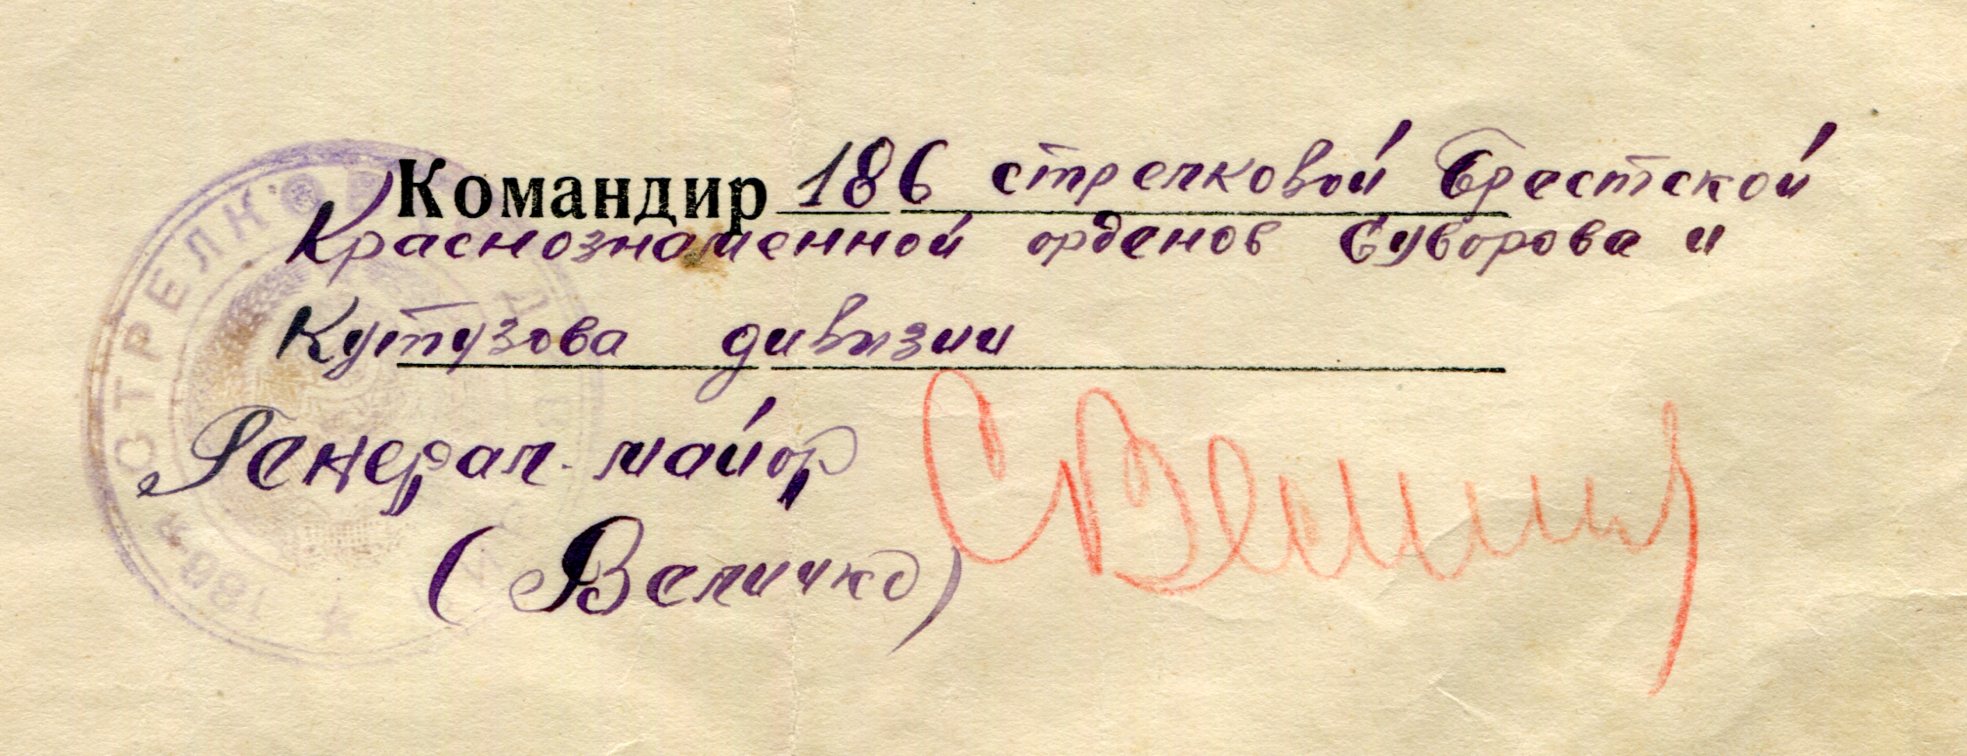 Командир 186 стрелковой Брестской
Краснознаменной орденов Суворова и
Кутузова дивизии
Генерал-майор
(Величко)
186-я СТРЕЛКОВАЯ